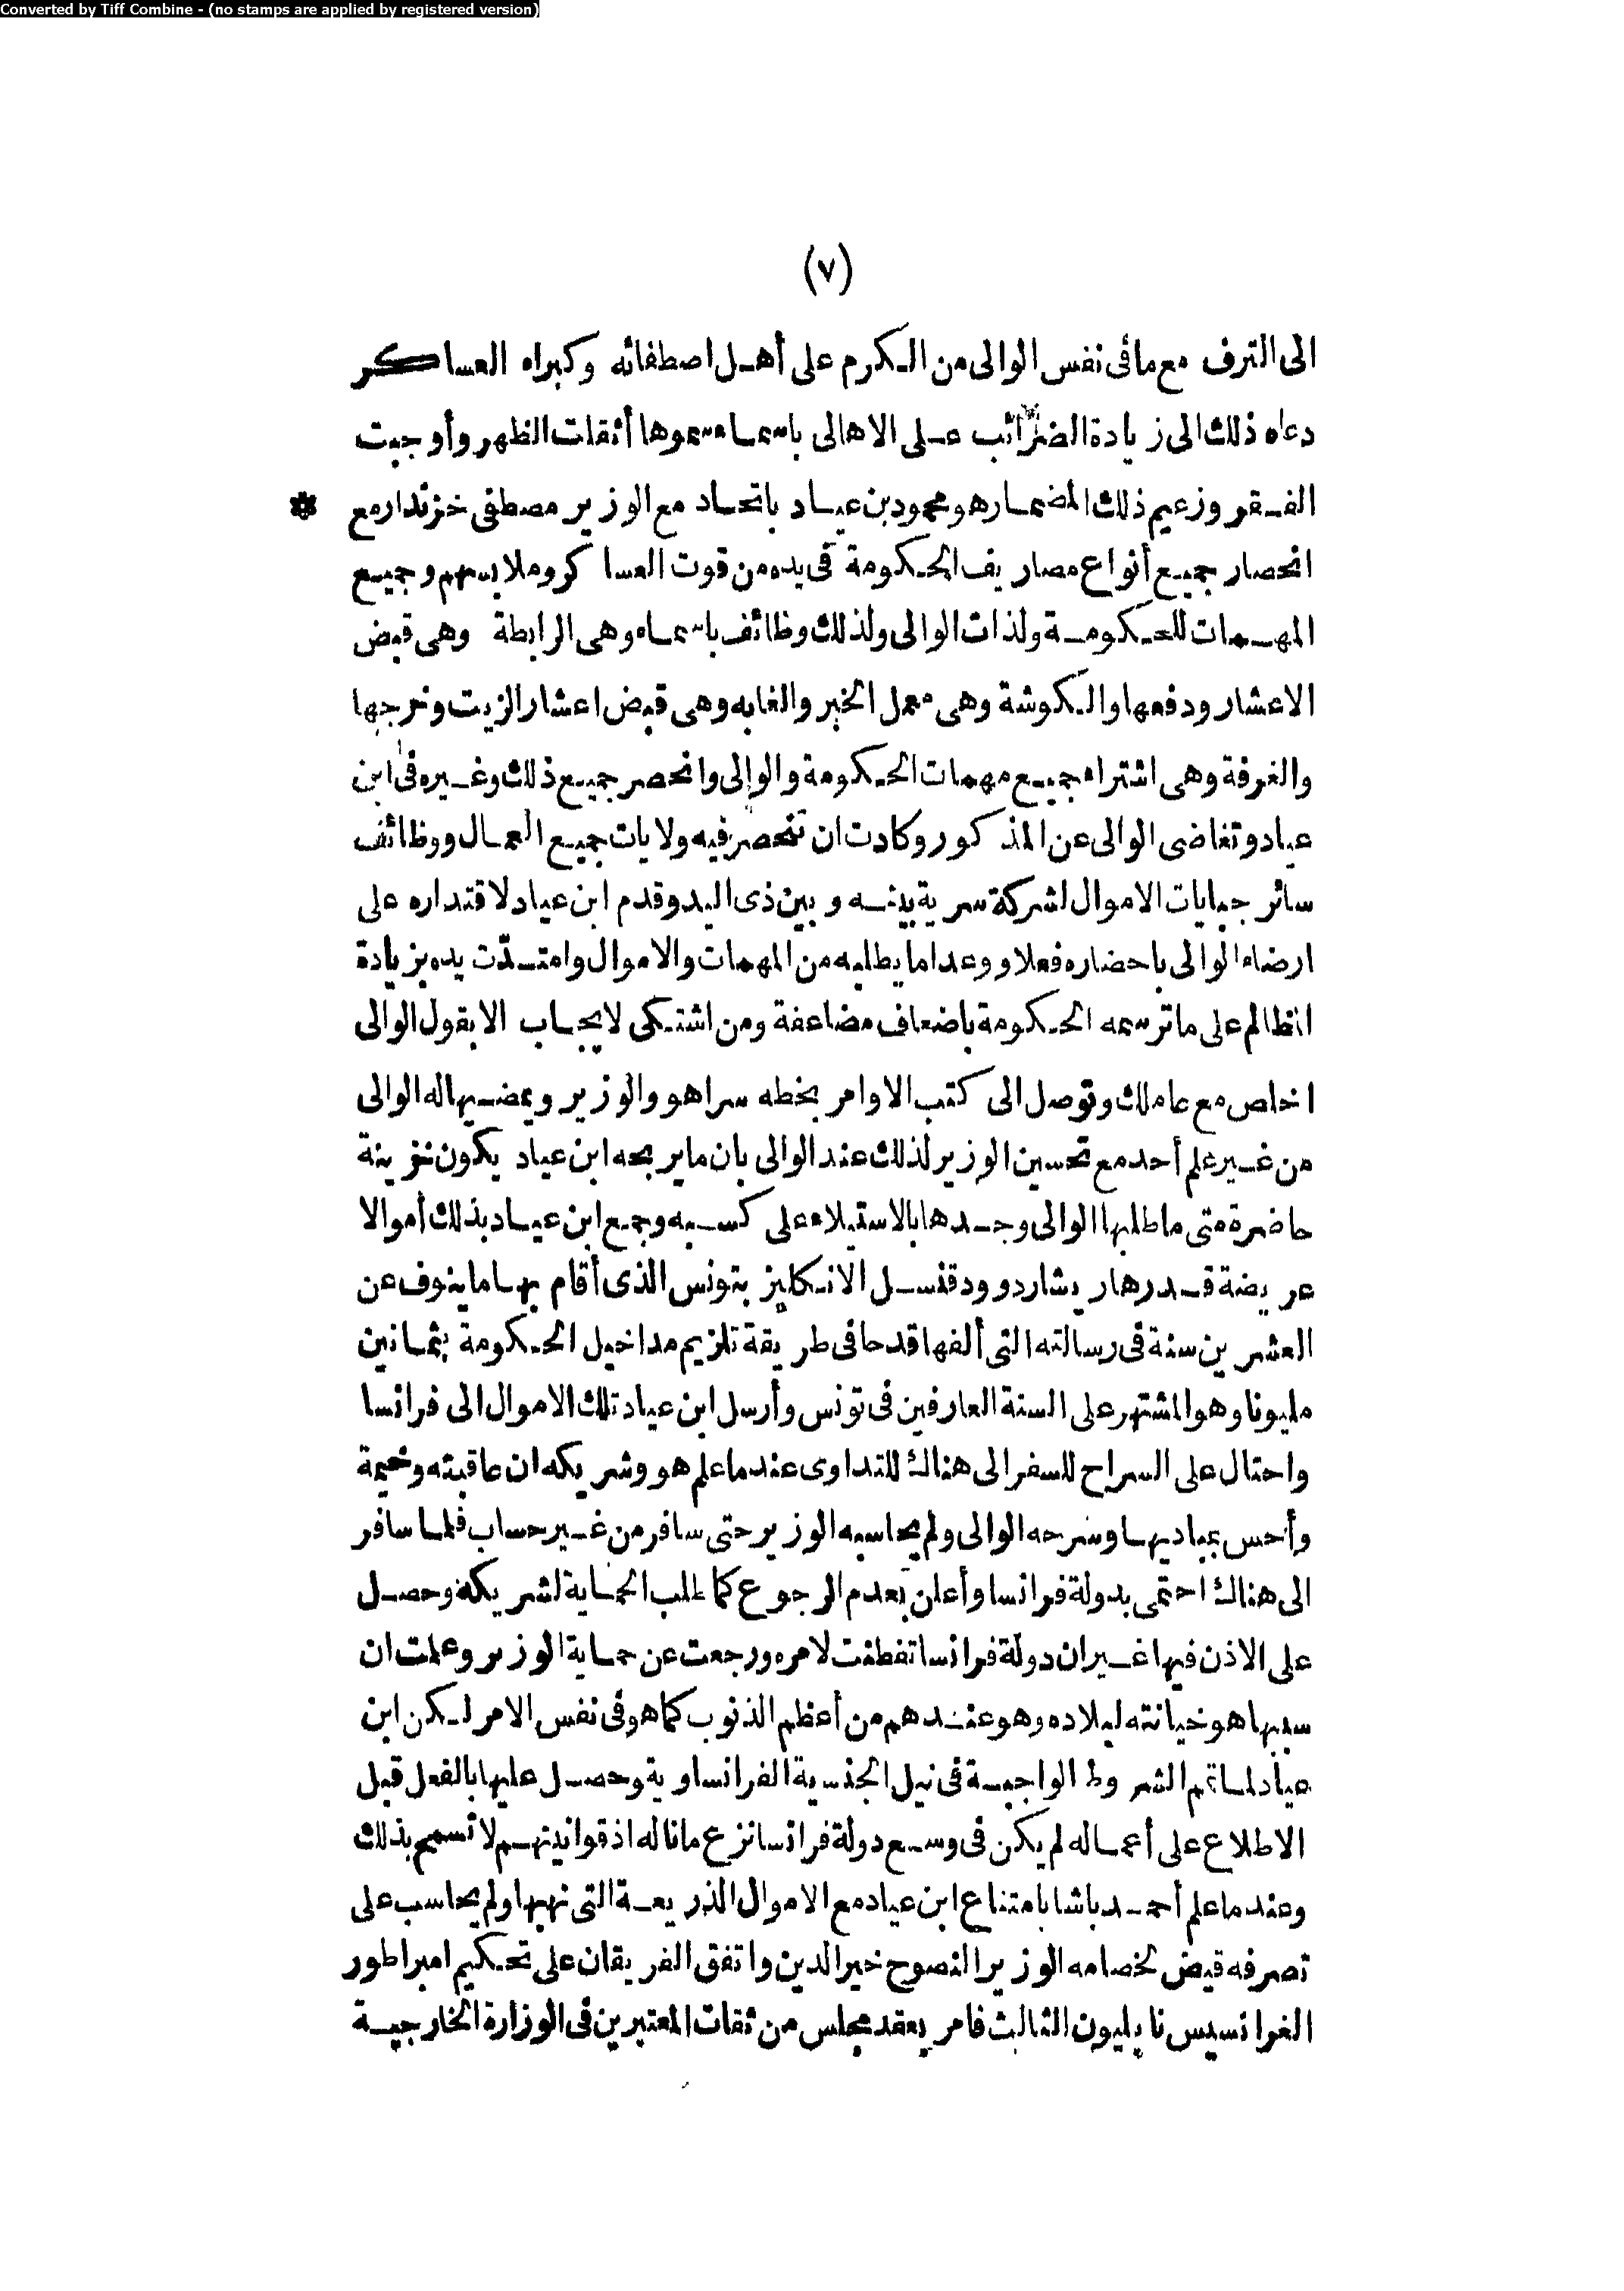 Converted by Tiff Combine - (no stamps are applied by registered version)
(٧)
الى الترف مع ما فى نفس الوالى من الكرم على أهل اصطفائه وكبراء العساكر
دعاه ذلك الى زيادة الضرائب على الاهالى باسماء سموها أثقلت الظهر وأوجبت
الفقر وزعيم ذلك المضمار هو محمود بن عياد باتحاد مع الوزير مصطفى خزندار مع *
انحصار جميع أنواع مصاريف الحكومة فى يده من قوت العساكر وملابسهم وجميع
المهمات للحكومة ولذات الوالى ولذلك وظائف باسماء وهى الرابطة وهى قبض
الاعشار ودفعها والكوشة وهى معمل الخبز والغابه وهى قبض اعشار الزيت وخرجها
والغرفة وهى اشتراء جميع مهمات الحكومة والوالى وانحصر جميع ذلك وغيره فى ابن
عياد وتغاضى الوالى عن المذكور وكادت ان تنحصر فيه ولايات جميع العمال ووظائف
سائر جبايات الاموال لشركة سرية بينه وبين ذى اليد وقدم ابن عياد لاقتداره على
ارضاء الوالى باحضاره فعلا ووعدا ما يطلبه من المهمات والاموال وامتدّت يده بزيادة
المظالم على ما ترسمه الحكومة باضعاف مضاعفة ومن اشتكى لا يجاب الا بقول الوالى
اخلص مع عاملك وتوصل الى كتب الاوامر بخطه سرا هو والوزير ويمضيها له الوالى
من غير علم أحد مع تحسين الوزير لذلك عند الوالى بان ما يربحه ابن عياد يكون خزينة
حاضرة متى ما طلبها الوالى وجدها بالاستيلاء على كسبه وجمع ابن عياد بذلك أموالا
عريضة قدرها ريشاردوود قنسل الانكليز بتونس الذى أقام بها ما ينوف عن
العشرين سنة فى رسالته التى ألفها قدحا فى طريقة تلزيم مداخيل الحكومة بثمانين
مليونا وهو المشتهر على السنة العارفين فى تونس وأرسل ابن عياد تلك الاموال الى فرانسا
واحتال على السراح للسفر الى هناك للتداوى عندما علم هو وشريكه ان عاقبته وخيمة
وأحس بمباديها وسرحه الوالى ولم يحاسبه الوزير حتى سافر من غير حساب فلما سافر
الى هناك احتمى بدولة فرانسا وأعلن بعدم الرجوع كما طلب الحماية لشريكه وحصل
على الاذن فيها غير ان دولة فرانسا تفطنت لامره ورجعت عن حماية الوزير وعلمت ان
سببها هو خيانته لبلاده وهو عندهم من أعظم الذنوب كما هو فى نفس الامر لكن ابن
عياد لما تمم الشروط الواجبة فى نيل الجنسية الفرانساوية وحصل عليها بالفعل قبل
الاطلاع على أعماله لم يكن فى وسع دولة فرانسا نزع ما ناله اذ قوانينهم لا تسمح بذلك
وعندما علم أحمد باشا بامتناع ابن عياد مع الاموال الذريعة التى نهبها ولم يحاسب على
تصرفه قيض لخصامه الوزير النصوح خير الدين واتفق الفريقان على تحكيم امبراطور
الفرانسيس نابليون الثالث فامر بعقد مجلس من ثقات المعتبرين فى الوزارة الخارجية